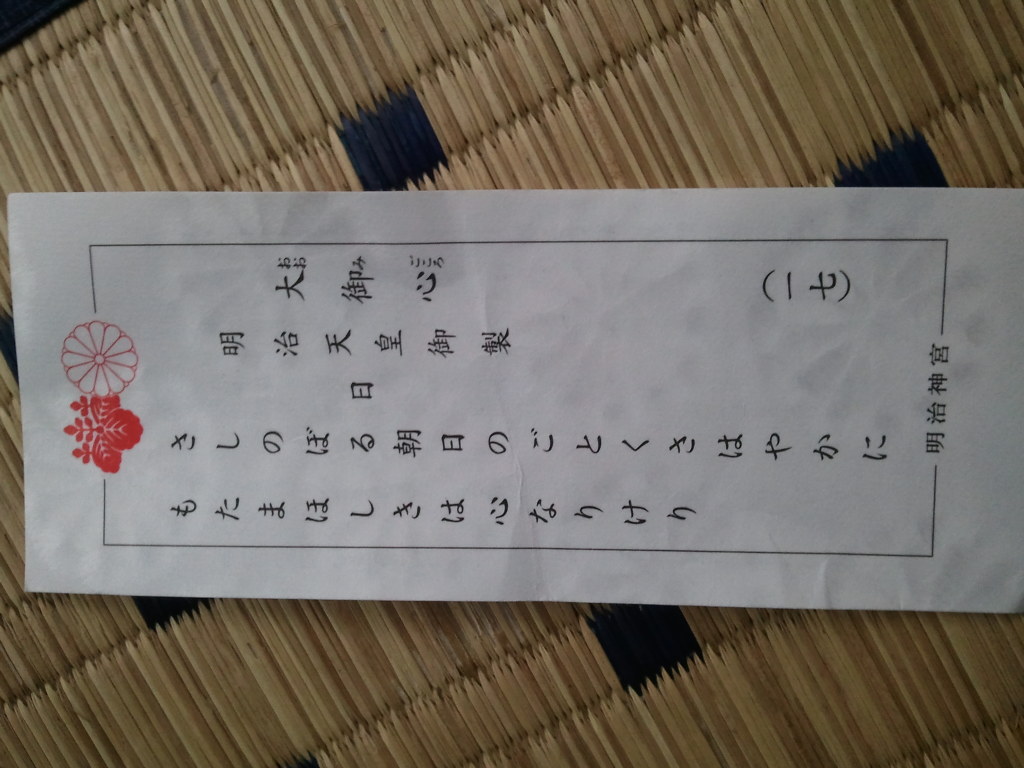 大御心
おおみごころ
(一七)
明治天皇御製
日
さしのぼる朝日のごとくさはやかに
もたまほしきは心なりけり
明治神宮